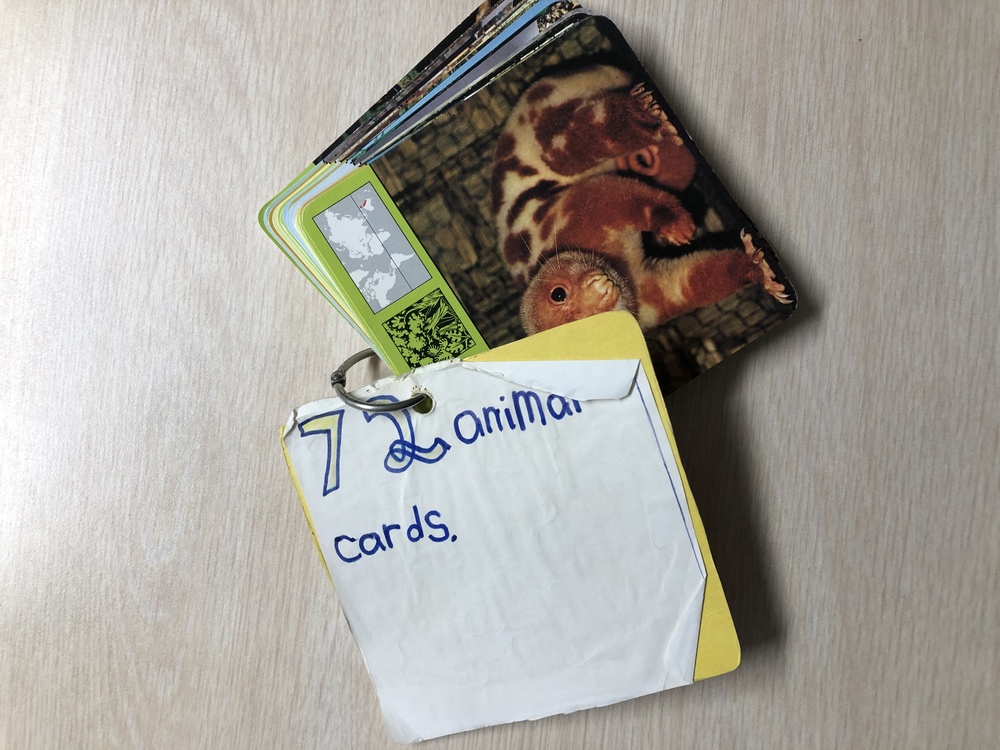 72 animal
cards.